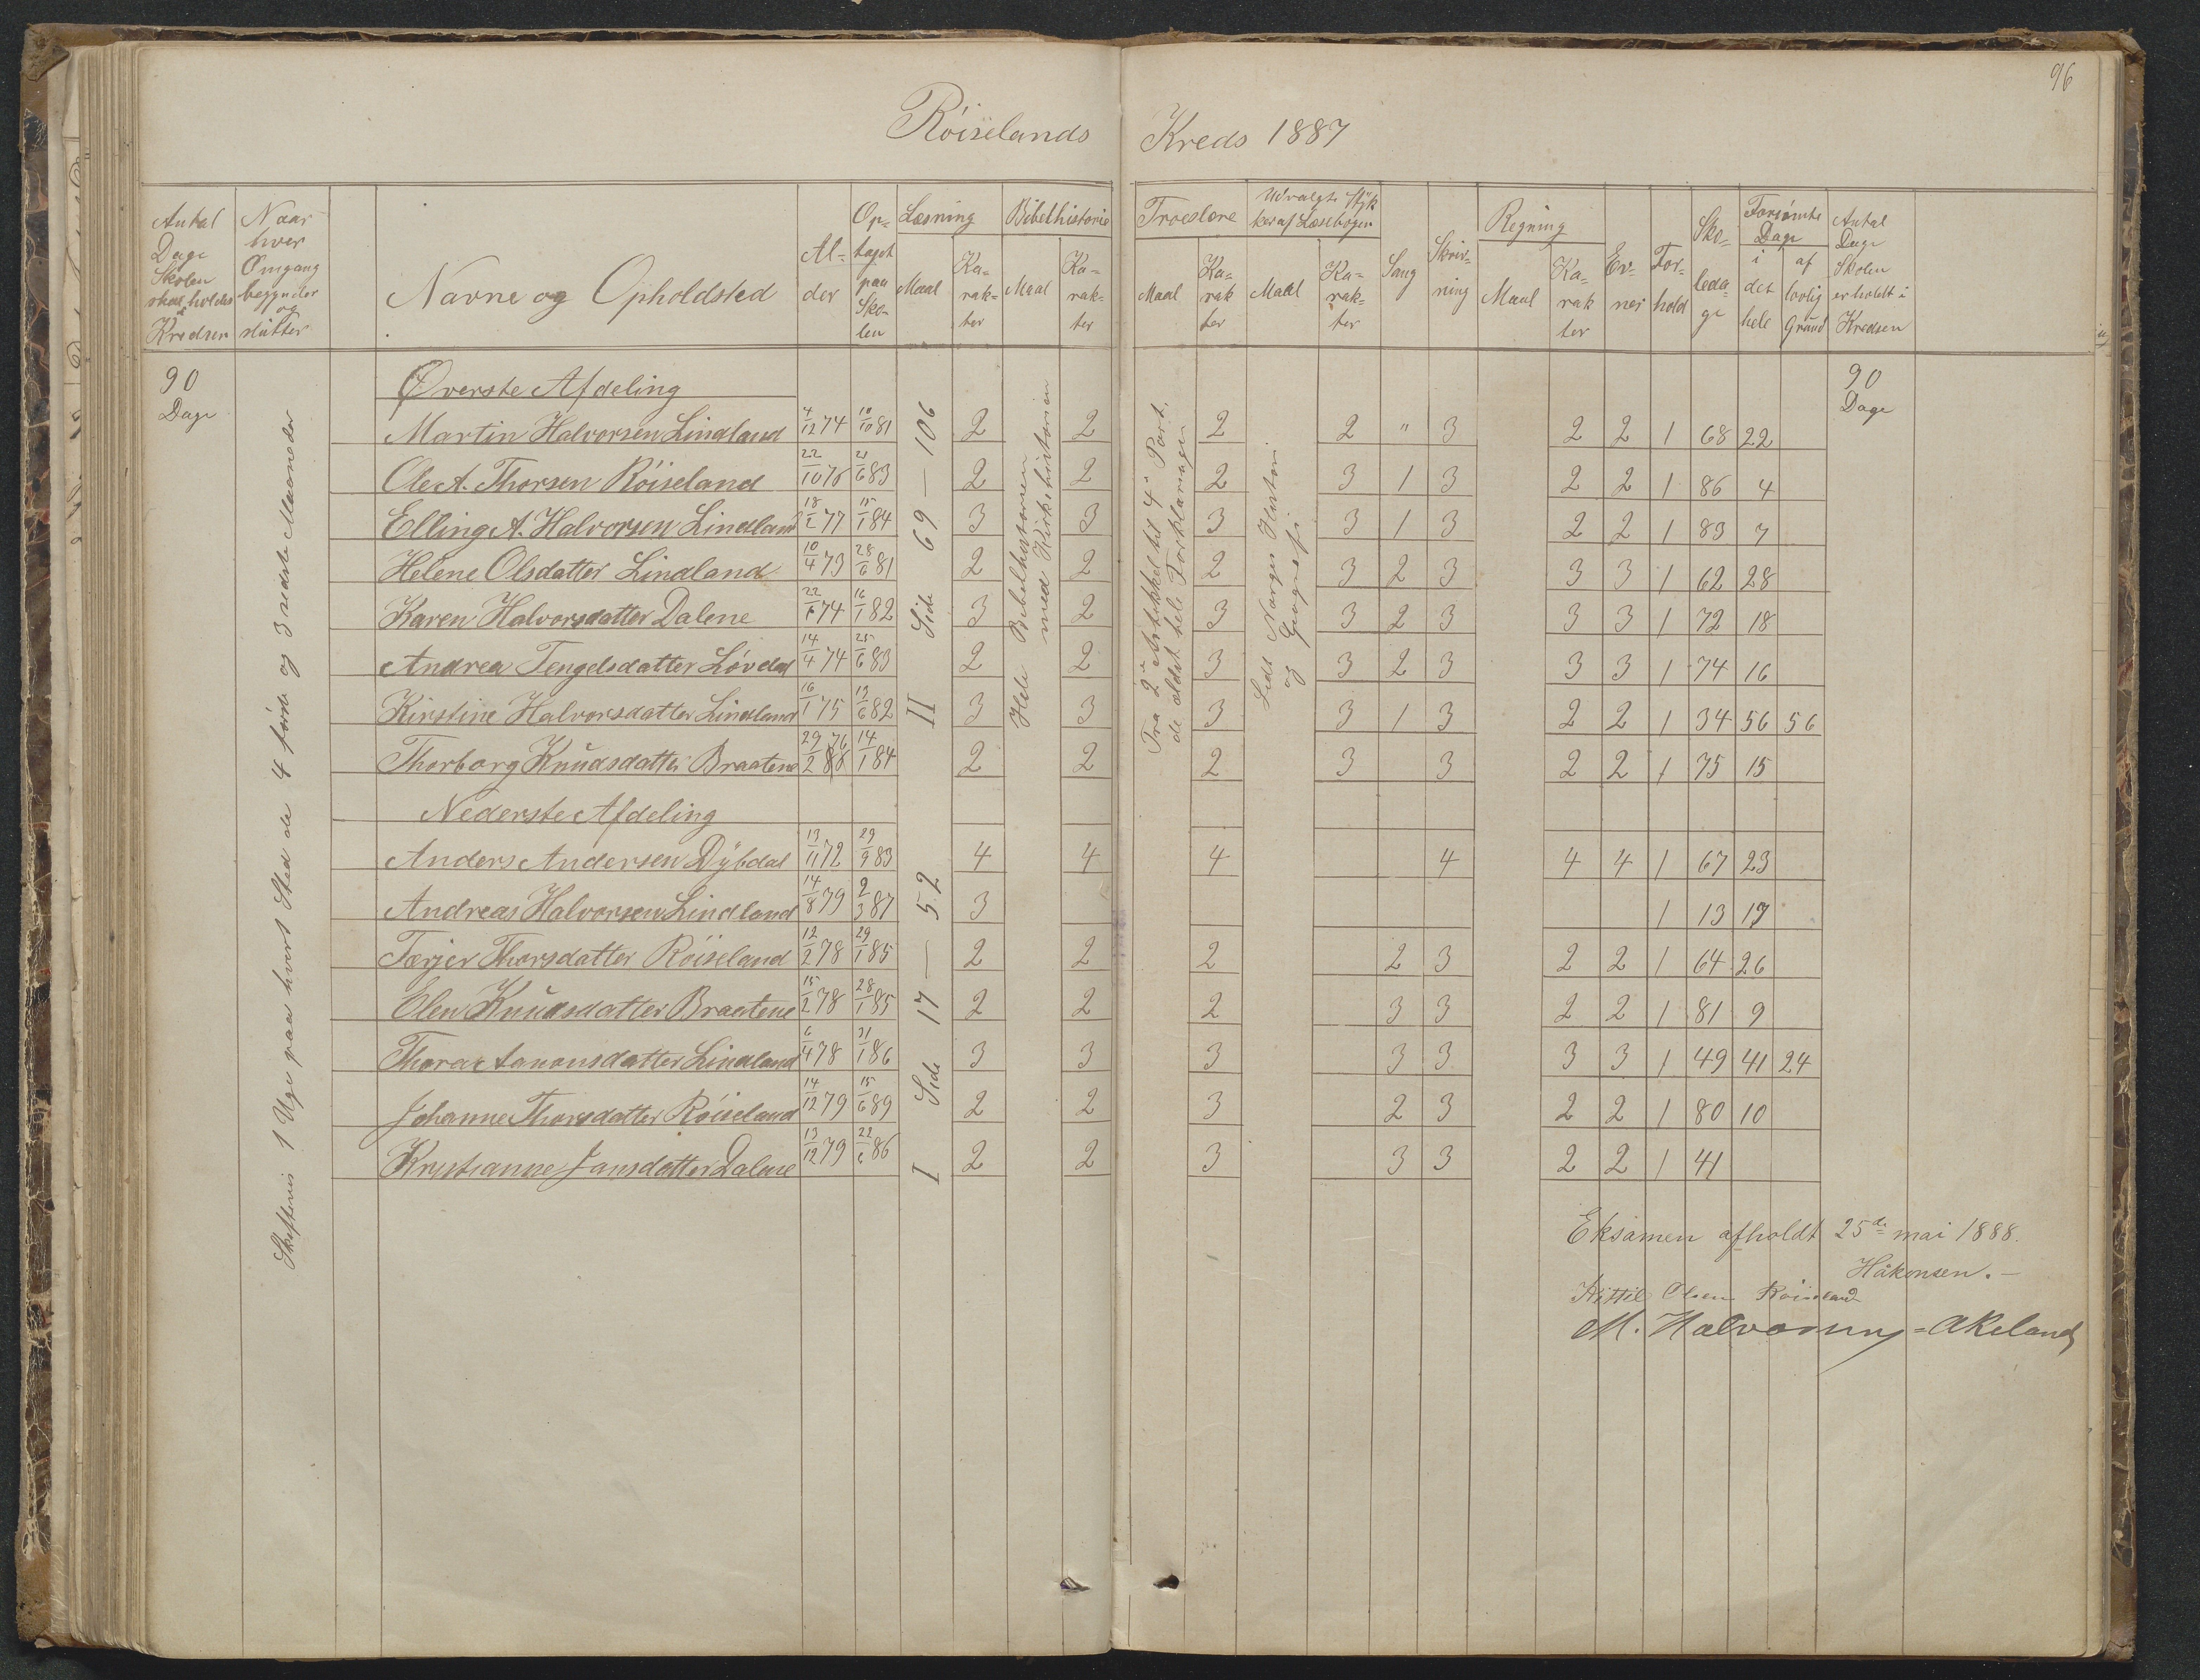 96
Röiselands Kreds 1887
Antal Dage Skolen skal holdes i Kredsen
Naar hver Omgang begynder og slutter
Navne og Opholdsted
Alder
Optaget paa Skolen
Læsning Maal Karakter
Bibelhistorie Maal Karakter
Troeslære Maal Karakter
Udvalgte Stykker af Læsebogen Maal Karakter
Sang
Skrivning
Regning Maal Karakter
Evner
Forhold
Skoledage
Forsømte Dage i det hele af lovlig Grund
Antal Dage Skolen er holdt i Kredsen
90 Dage
Skiftevis 1 Uge paa hvert Sted de 4 første og 3 sidste Maaneder
Øverste Afdeling
90 Dage
II Side 69 — 106
Hele Bibelhistorien med Kirkehistorien
Fra 2 Artikkel til 4 Part. de ældst hele Forklaringen
Lidt Norges Historie og Geografi
Martin Halvorsen Lindland 4/12 74 10/10 81 2 2 2 2 " 3 2 2 1 68 22
Ole A. Thorsen Röiseland 22/10 76 21/6 83 2 2 2 3 1 3 2 2 1 86 4
Elling A. Halvorsen Lindland 18/1 77 15/1 84 3 3 3 3 1 3 2 2 1 83 7
Helene Olsdatter Lindland 10/4 73 28/6 81 2 2 2 3 2 3 3 3 1 62 28
Karen Halvorsdatter Dalene 22/6 74 16/1 82 3 2 3 3 2 3 3 3 1 72 18
Andrea Tengelsdatter Lövdal 14/4 74 25/6 83 2 2 3 3 2 3 3 3 1 74 16
Kirstine Halvorsdatter Lindland 16/1 75 19/6 82 3 3 3 3 1 3 2 2 1 34 56 56
Thorborg Knudsdatter Braatene 29/2 76 14/1 84 2 2 2 3 3 2 2 1 75 15
Nederste Afdeling
I Side 17 — 52
Anders Andersen Dybdal 13/11 72 29/9 83 4 4 4 4 4 4 1 67 23
Andreas Halvorsen Lindland 14/8 79 2/3 87 3 1 13 17
Terjer Thorsdatter Röiseland 12/2 78 29/1 85 2 2 2 2 3 2 2 1 64 26
Elen Knudsdatter Braatene 15/2 78 28/1 85 2 2 2 3 3 2 2 1 81 9
Thora Aanonsdatter Lindland 6/4 78 31/1 86 3 3 3 3 3 3 3 1 49 41 24
Johanne Thorsdatter Röiseland 14/12 79 15/6 89 2 2 3 2 3 2 2 1 80 10
Kristianne Jansdatter Dalene 13/12 79 22/6 86 2 2 3 3 3 2 2 1 41
Eksamen afholdt 25de mai 1888.
Håkonsen.
Kittil Olsen Röiseland
M. Halvorsen = Akeland